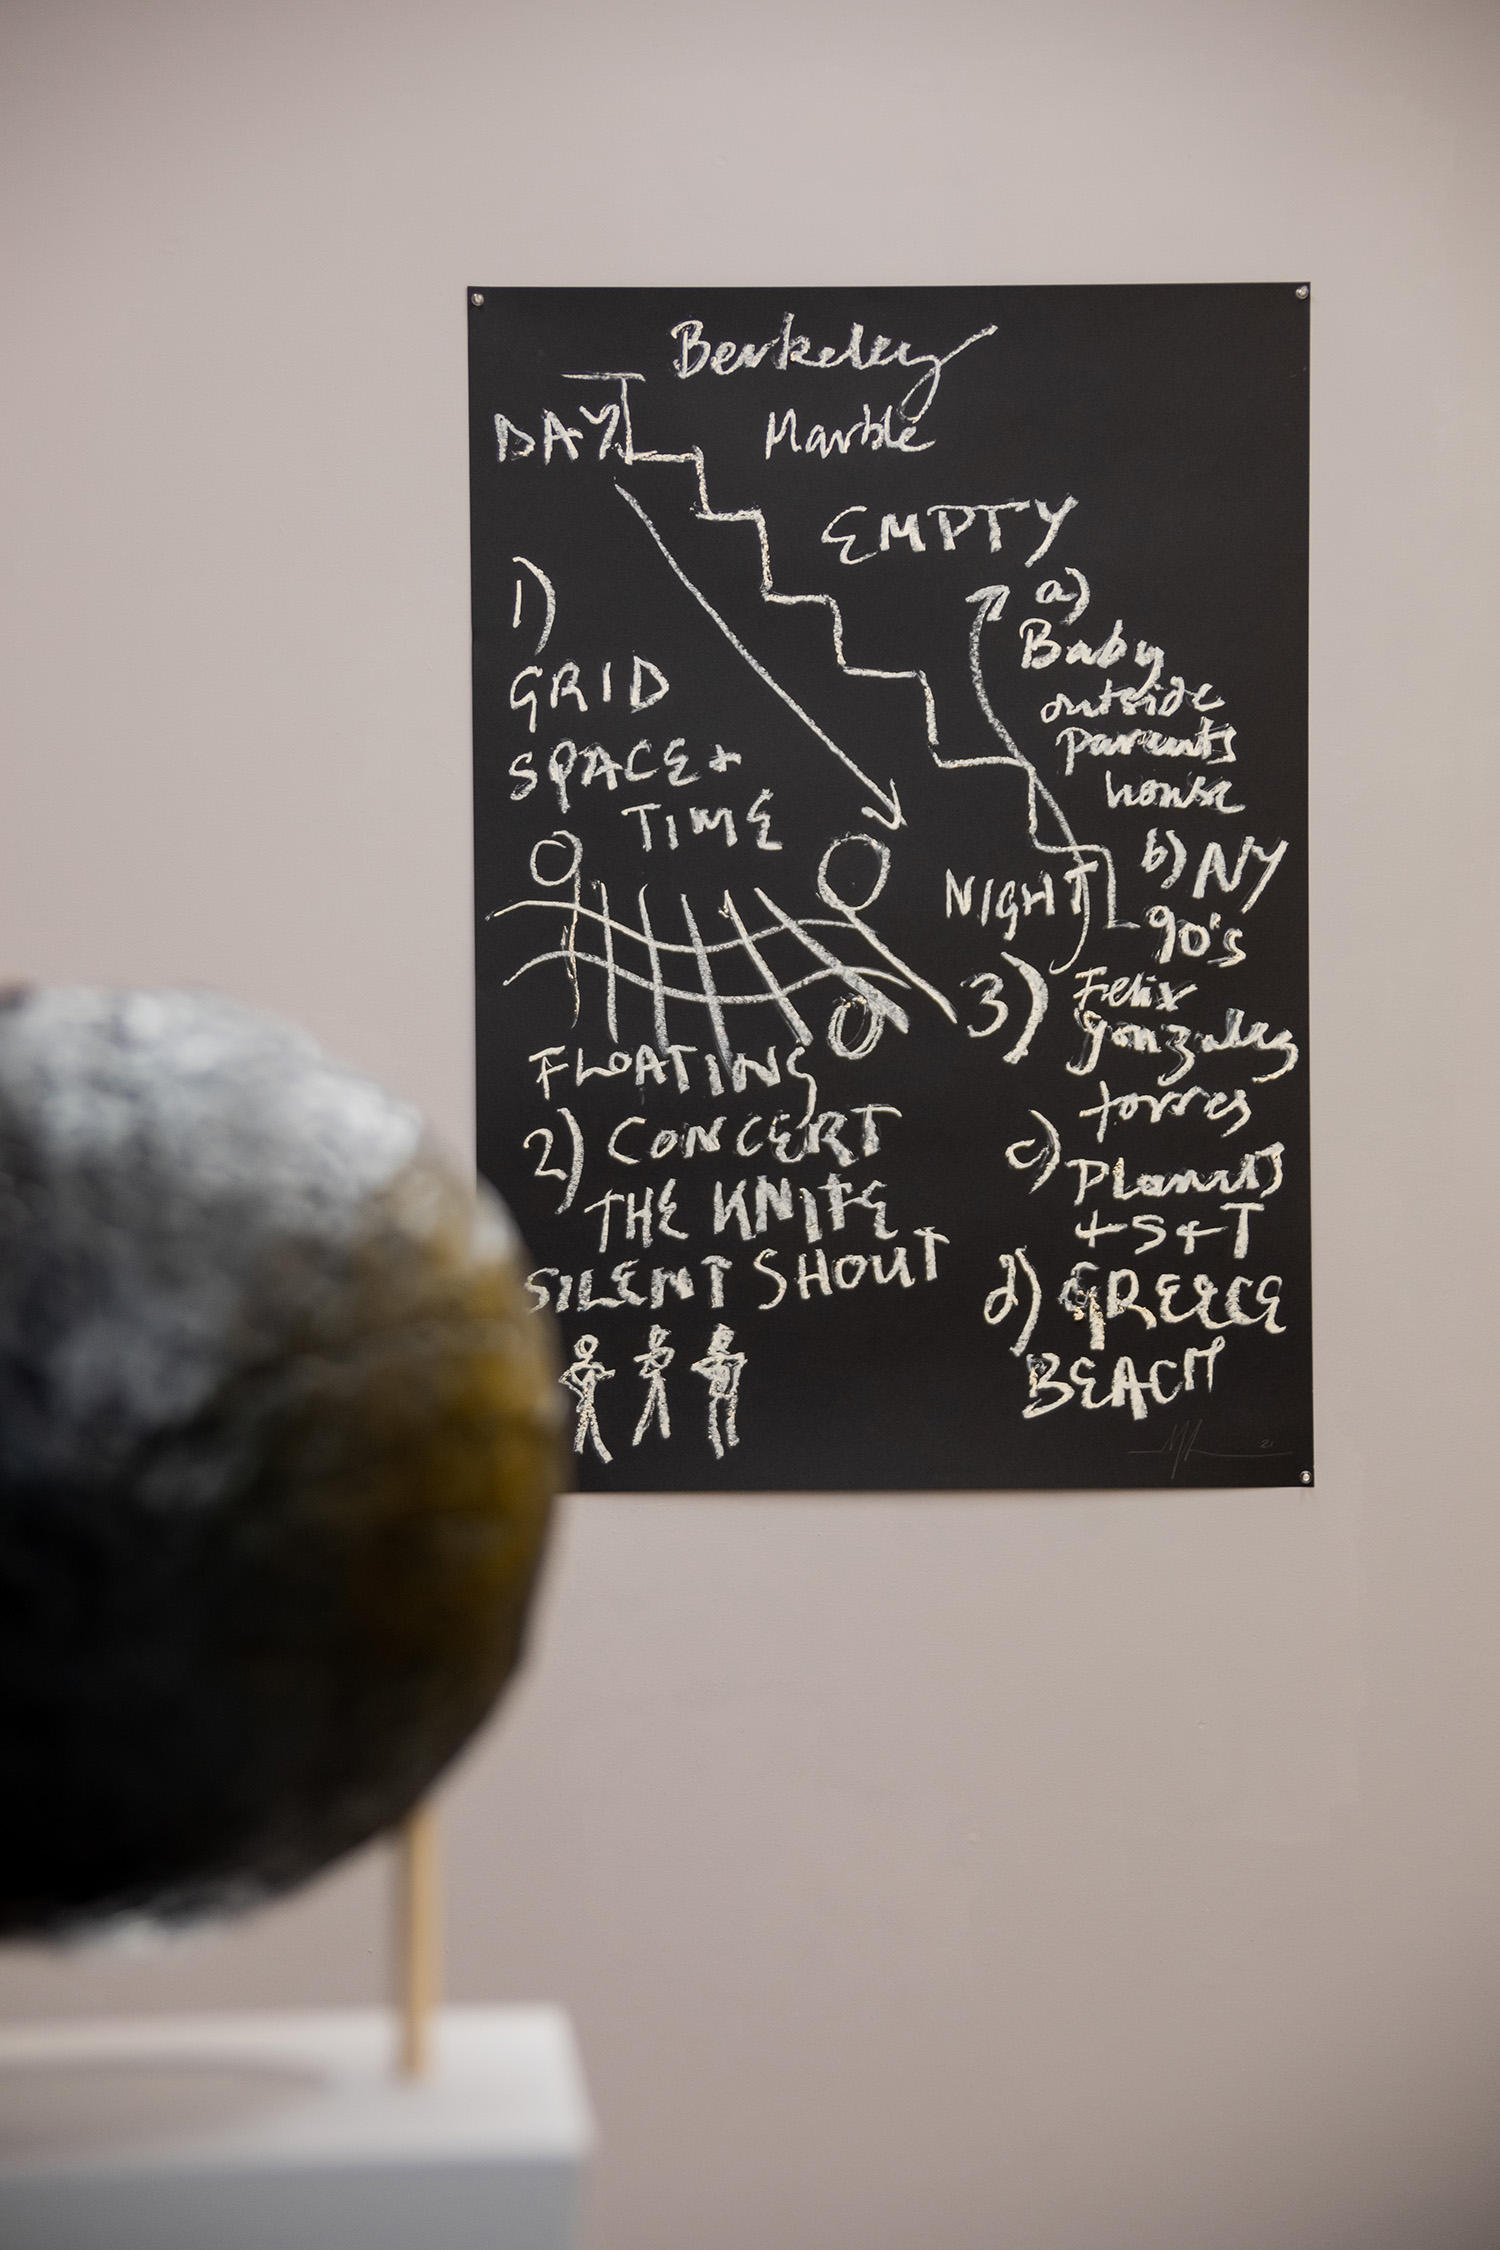 Berkeley
Marble
DAY
EMPTY
1)
GRID
SPACE +
TIME
FLOATING
2) CONCERT
THE KNIFE
SILENT SHOUT
NIGHT
3)
a)
Baby
outside
parents
house
b) NY
90's
Felix
gonzales
torres
c) Planets
+ S + T
d) GREECE
BEACH
21